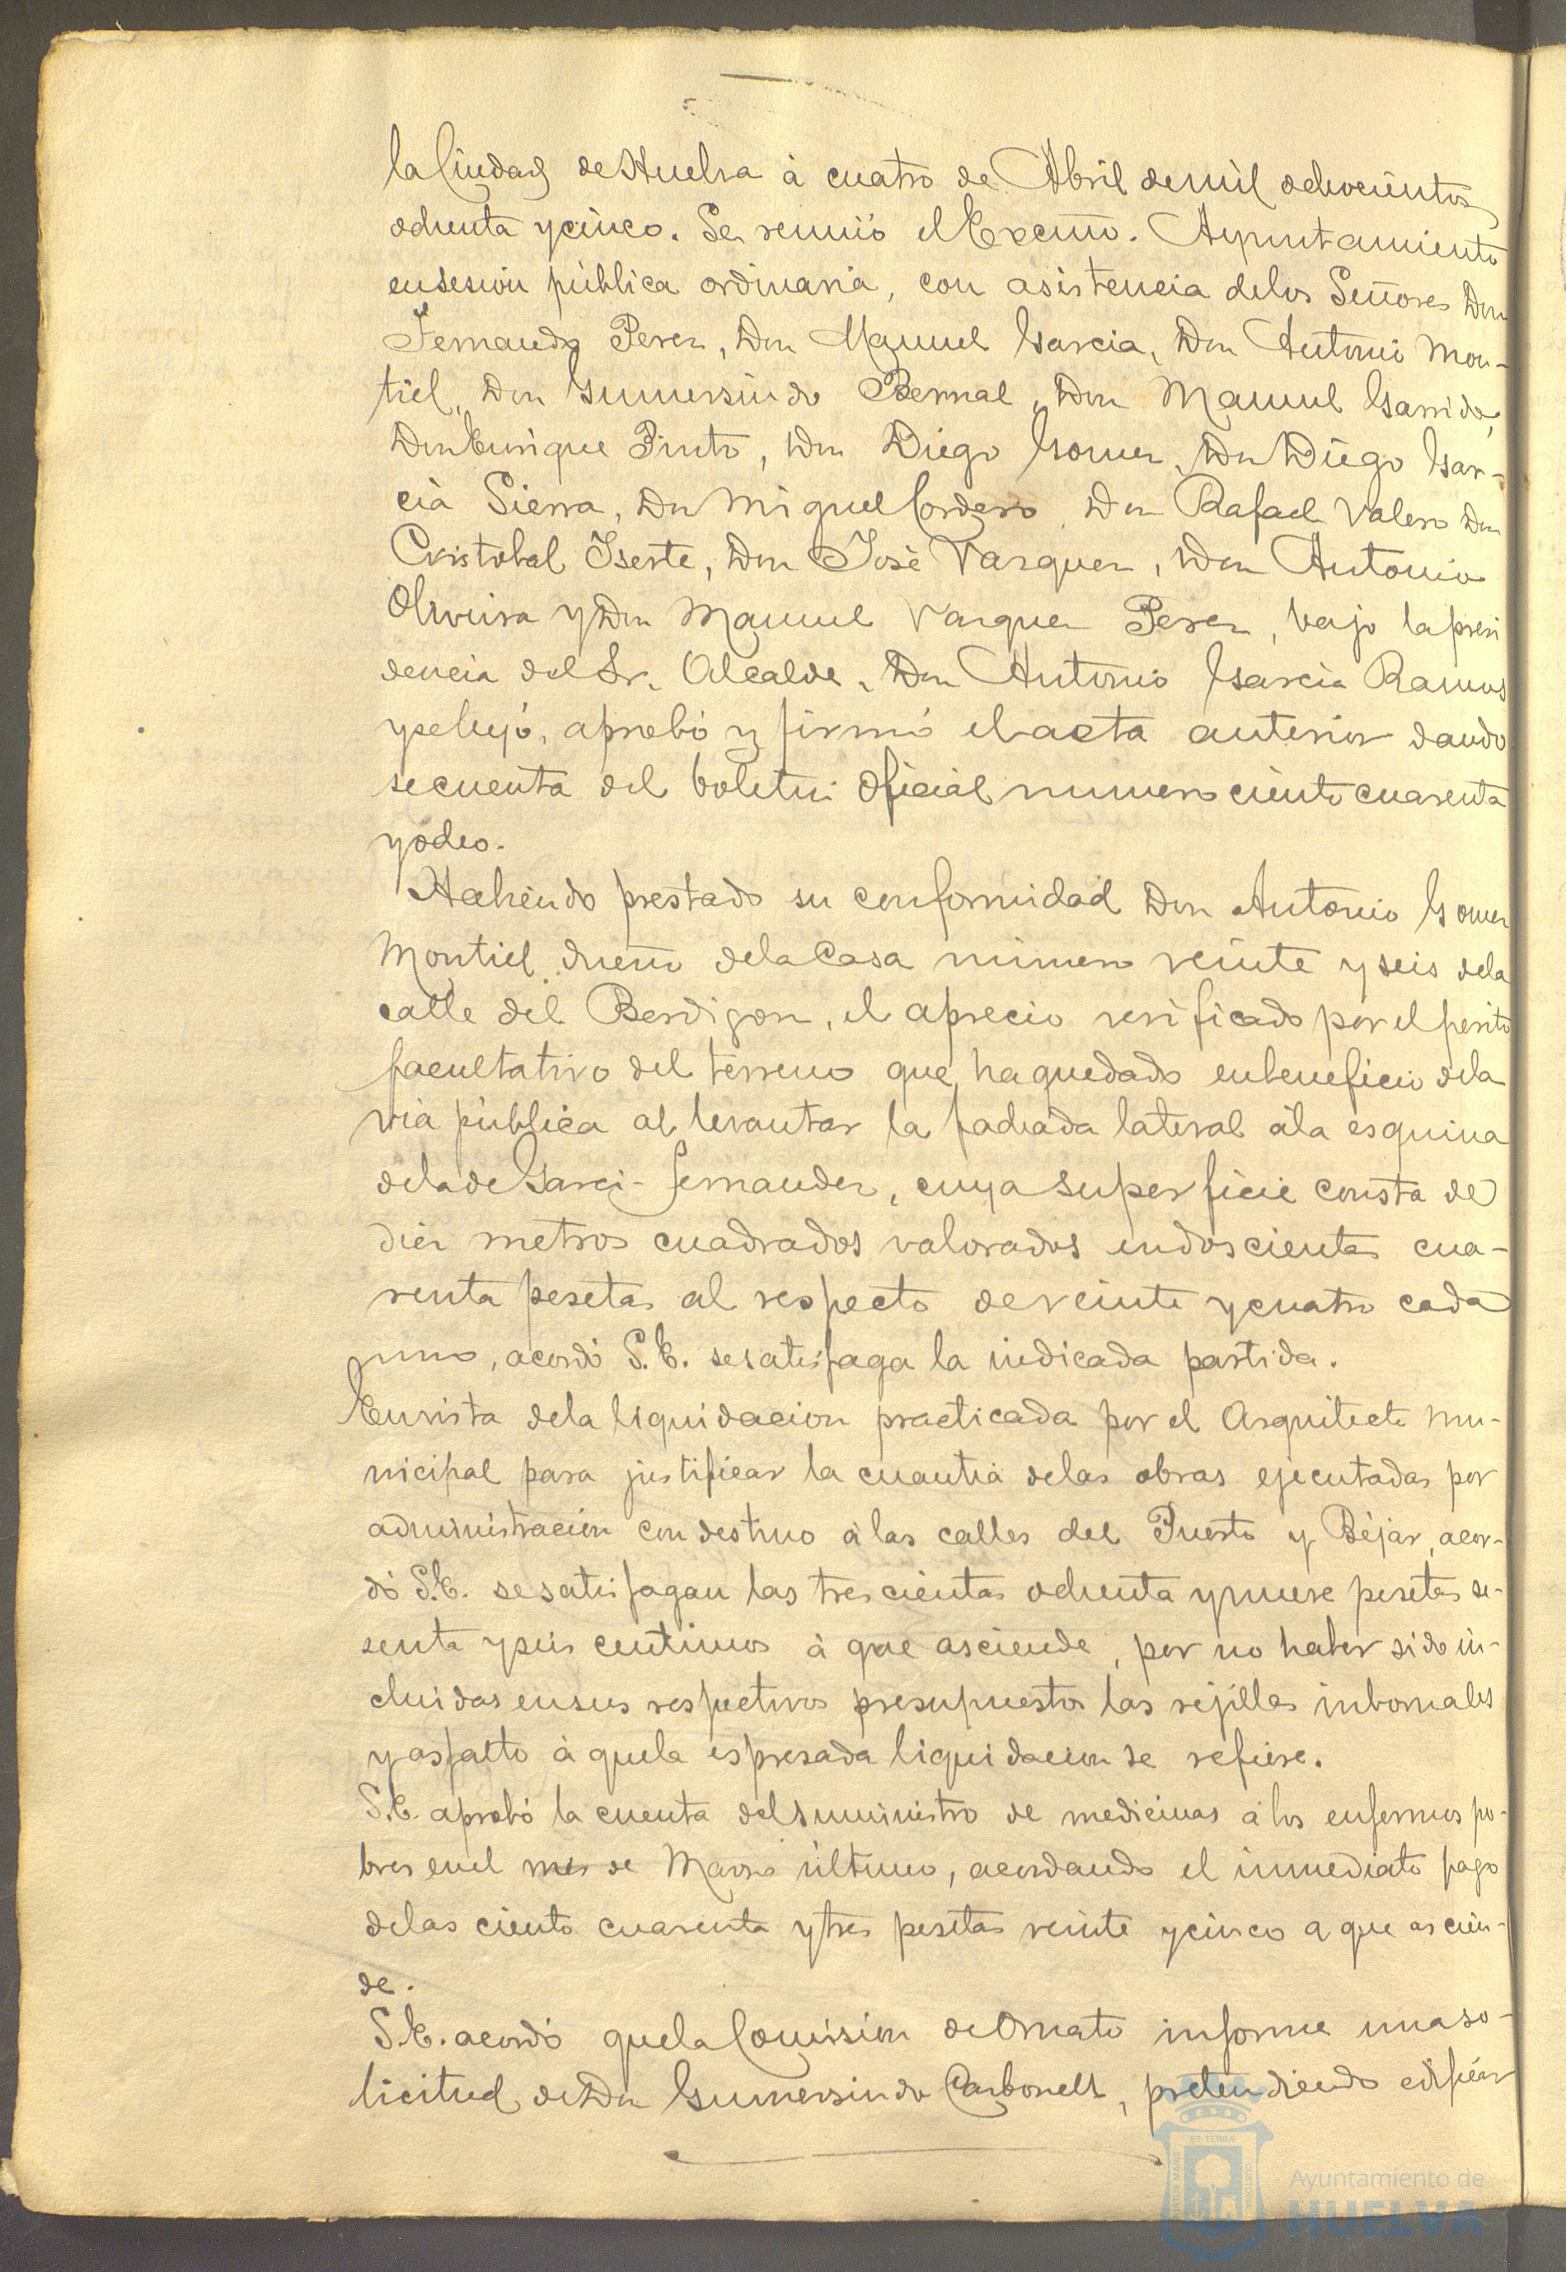 la Ciudad de Huelva à cuatro de Abril de mil ochocientos
ochenta y cinco. Se reunió el Excmo. Ayuntamiento
en sesion pública ordinaria, con asistencia de los Señores Don
Fernando Perez, Don Manuel Garcia, Don Antonio Mon-
tiel, Don Gumersindo Bernal, Don Manuel Garrido,
Don Enrique Pinto, Don Diego Gomez, Don Diego Gar-
cia Sierra, Don Miguel Cordero, Don Rafael Valero Don
Cristobal Iserte, Don José Vazquez, Don Antonio
Oliveira y Don Manuel Vazquez Perez, bajo la presi
dencia del Sr. Alcalde, Don Antonio Garcia Ramos
y se leyó, aprobó y firmó el acta anterior dando
se cuenta del boletin oficial numero ciento cuarenta
y ocho.
Habiendo prestado su conformidad Don Antonio Gomez
Montiel dueño de la Casa número veinte y seis de la
calle del Berdigon, el aprecio verificado por el perito
facultativo del terreno que ha quedado en beneficio de la
via pública al levantar la fachada lateral à la esquina
de la de Garci-Fernandez, cuya superficie consta de
diez metros cuadrados valorados en doscientas cua-
renta pesetas al respecto de veinte y cuatro cada
uno, acordó S.E. se satisfaga la indicada partida.
En vista de la liquidacion practicada por el Arquitecto mu-
nicipal para justificar la cuantia de las obras ejecutadas por
administracion con destino à las calles del Puerto y Béjar, acor-
dó S.E. se satisfagan las trescientas ochenta y nueve pesetas se-
senta y seis centimos à que asciende, por no haber sido in-
cluidas en sus respectivos presupuestos las rejillas imbornales
y asfalto à que la espresada liquidacion se refiere.
S.E. aprobó la cuenta del suministro de medicinas à los enfermos po-
bres en el mes de Marzo último, acordando el inmediato pago
de las ciento cuarenta y tres pesetas veinte y cinco a que ascien-
de.
S.E. acordó que la Comision de Ornato informe una so-
licitud de Don Gumersindo Carbonell, pretendiendo edificar
Ayuntamiento de
HUELVA